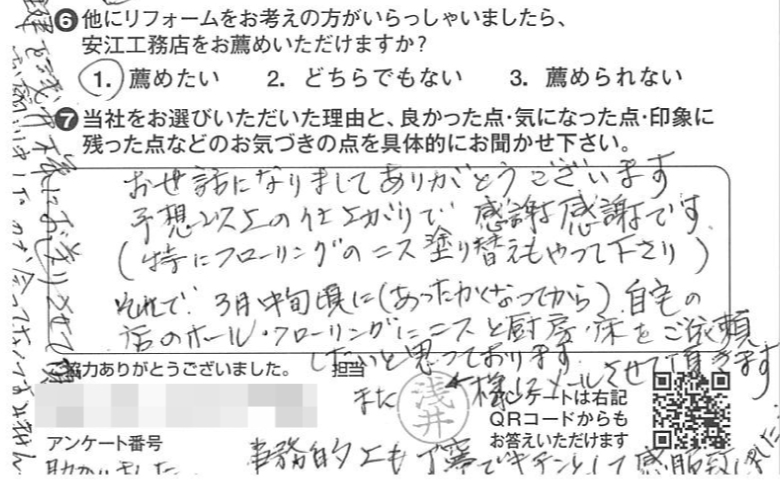 ❻他にリフォームをお考えの方がいらっしゃいましたら、
安江工務店をお薦めいただけますか?
1. 薦めたい 2. どちらでもない 3. 薦められない
❼当社をお選びいただいた理由と、良かった点・気になった点・印象に
残った点などのお気づきの点を具体的にお聞かせ下さい。
お世話になりましてありがとうございます
予想以上の仕上がりで 感謝感謝です
(特にフローリングのニス塗り替えもやって下さり)
それで、3月中旬頃に(あったかくなってから)自宅の
活のホール・フローリングにニスと厨房・床をご依頼
したいと思っております
また 様にメールさせて頂きます
協力ありがとうございました。 担当
浅井
アンケートは右記
QRコードからも
お答えいただけます
アンケート番号
事務的上も丁寧でキチンとして感服致しました
助かりました